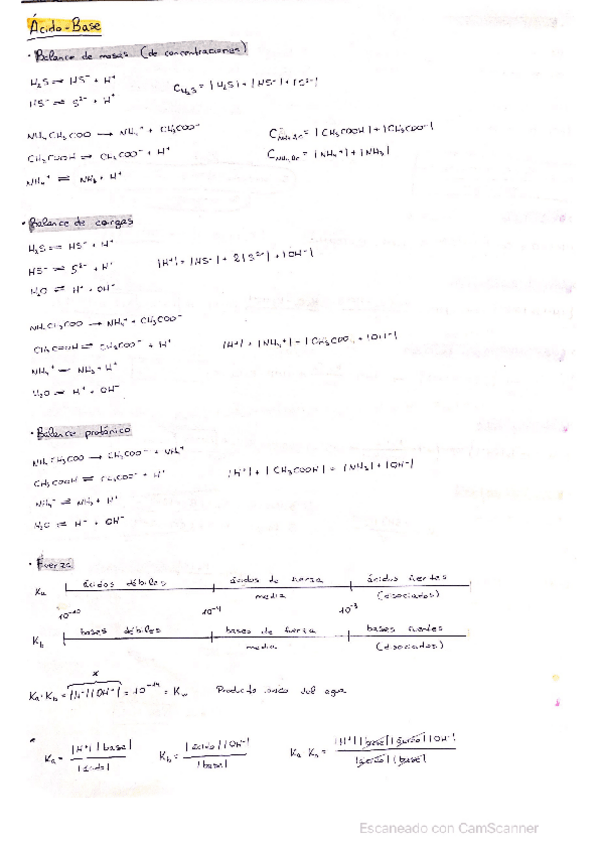 Ácido-Base
· Balance de masas (de concentraciones)
H₂S ⇌ HS⁻ + H⁺
C_H₂S = |H₂S| + |HS⁻| + |S²⁻|
HS⁻ ⇌ S²⁻ + H⁺
NH₄CH₃COO → NH₄⁺ + CH₃COO⁻
C_NH₄Ac = |CH₃COOH| + |CH₃COO⁻|
CH₃COOH ⇌ CH₃COO⁻ + H⁺
C_NH₄Ac = |NH₄⁺| + |NH₃|
NH₄⁺ ⇌ NH₃ + H⁺
· Balance de cargas
H₂S ⇌ HS⁻ + H⁺
HS⁻ ⇌ S²⁻ + H⁺
|H⁺| = |HS⁻| + 2|S²⁻| + |OH⁻|
H₂O ⇌ H⁺ + OH⁻
NH₄CH₃COO → NH₄⁺ + CH₃COO⁻
CH₃COOH ⇌ CH₃COO⁻ + H⁺
|H⁺| + |NH₄⁺| = |CH₃COO⁻| + |OH⁻|
NH₄⁺ ⇌ NH₃ + H⁺
H₂O ⇌ H⁺ + OH⁻
· Balance protónico
NH₄CH₃COO → CH₃COO⁻ + NH₄⁺
CH₃COOH ⇌ CH₃COO⁻ + H⁺
|H⁺| + |CH₃COOH| = |NH₃| + |OH⁻|
NH₄⁺ ⇌ NH₃ + H⁺
H₂O ⇌ H⁺ + OH⁻
· Fuerza
Ka ácidos débiles ácidos de fuerza media ácidos fuertes (disociados)
10⁻⁴ 10⁻³
Kb bases débiles bases de fuerza media bases fuertes (disociados)
Ka·Kb = |H⁺||OH⁻| = 10⁻¹⁴ = Kw Producto iónico del agua
Ka = |H⁺||base| / |ácido| Kb = |ácido||OH⁻| / |base| Ka Kb = |H⁺||base||ácido||OH⁻| / |ácido||base|
Escaneado con CamScanner